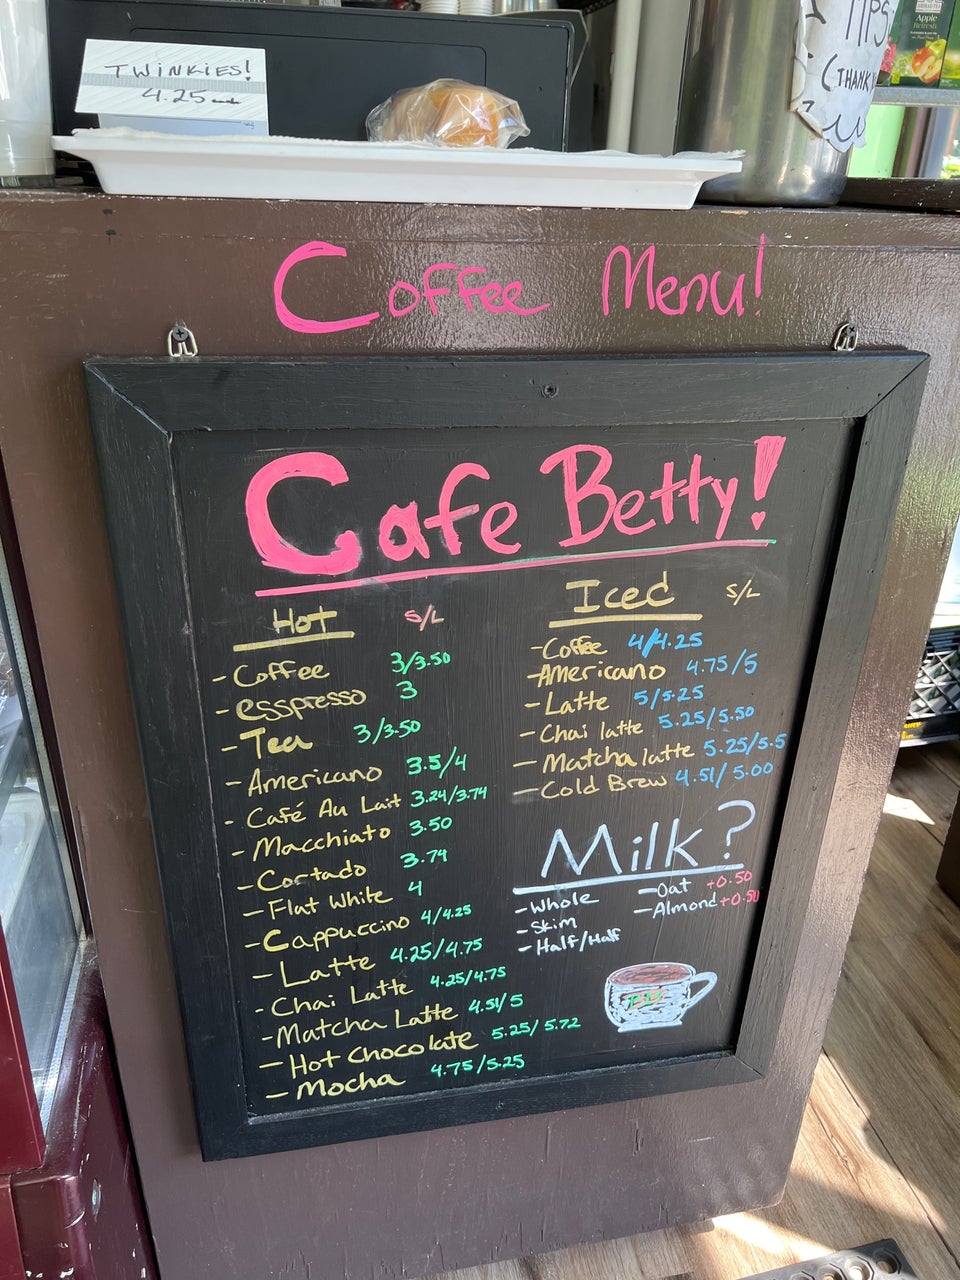 TWINKIES!
4.25
TIPS
(THANK
Apple
Refresh
Coffee Menu!
Cafe Betty!
Hot S/L
- Coffee 3/3.50
- esspresso 3
- Tea 3/3.50
- Americano 3.5/4
- Café Au Lait 3.24/3.74
- Macchiato 3.50
- Cortado 3.74
- Flat White 4
- Cappuccino 4/4.25
- Latte 4.25/4.75
- Chai Latte 4.25/4.75
- Matcha Latte 4.51/5
- Hot Chocolate 5.25/5.72
- Mocha 4.75/5.25
Iced S/L
- Coffee 4/4.25
- Americano 4.75/5
- Latte 5/5.25
- Chai latte 5.25/5.50
- Matcha latte 5.25/5.5
- Cold Brew 4.51/5.00
Milk?
- Whole
- Skim
- Half/Half
- Oat +0.50
- Almond +0.50